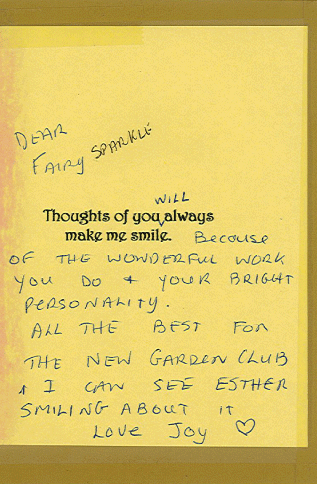 DEAR
FAIRY SPARKLE
WILL
Thoughts of you always
make me smile. Because
OF THE WONDERFUL WORK
YOU DO + YOUR BRIGHT
PERSONALITY.
ALL THE BEST FOR
THE NEW GARDEN CLUB
+ I CAN SEE ESTHER
SMILING ABOUT IT
LOVE JOY ♡